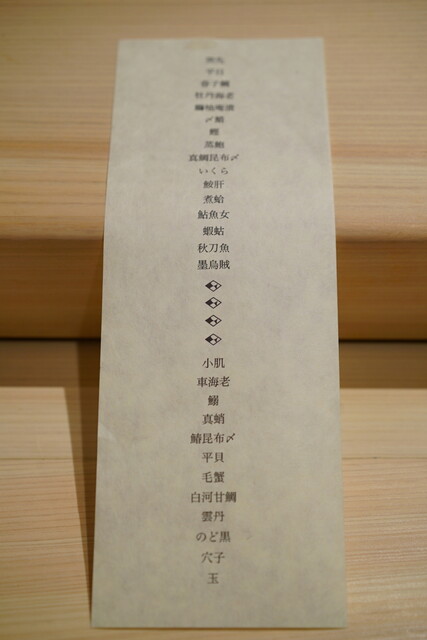 平目
春子鯛
牡丹海老
〆鯖
鰹
蒸鮑
真鯛昆布〆
いくら
鮟肝
煮蛤
鮎魚女
蝦蛄
秋刀魚
墨烏賊
小肌
車海老
鰯
真蛸
鰆昆布〆
平貝
毛蟹
白河甘鯛
雲丹
のど黒
穴子
玉